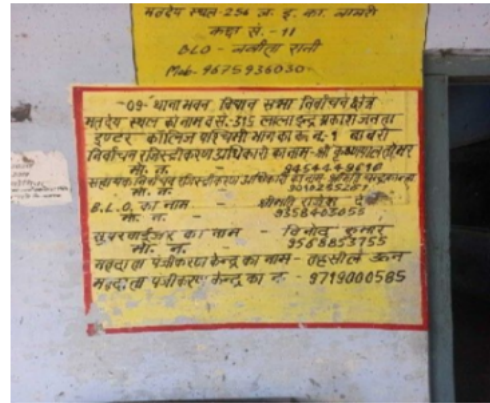 मतदेय स्थल-254 ज. इ. का. बाबरी
कक्ष सं. - 11
BLO - बबीता रानी
Mob- 9675936030-
-09- थाना भवन विधान सभा निर्वाचन क्षेत्र
मतदेय स्थल का नाम व सं.-315 लाला इन्द्र प्रकाश जनता
इण्टर कॉलिज पश्चिमी भाग का क.न.-1 बाबरी
निर्वाचन रजिस्ट्रीकरण अधिकारी का नाम-श्री कृष्णपाल तोमर
मो. न.
सहायक निर्वाचन रजिस्ट्रीकरण अधिकारी का नाम
मो. न.
B.L.O. का नाम - श्रीमति राजेश देवी
मो. न. 9358403055
सुपरवाईजर का नाम - विनोद कुमार
मो. न. 9568853755
मतदाता पंजीकरण केन्द्र का नाम- तहसील ऊन
मतदाता पंजीकरण केन्द्र का न.- 9719000585